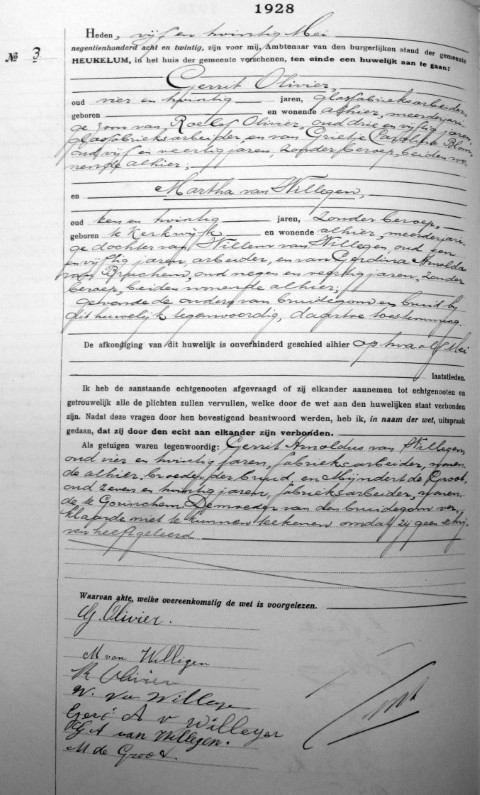 1928
Heden, vijf en twintig Mei
negentienhonderd acht en twintig, zijn voor mij, Ambtenaar van den burgerlijken stand der gemeente
№ 3 HEUKELUM, in het huis der gemeente verschenen, ten einde een huwelijk aan te gaan:
Gerrit Olivier,
oud vier en twintig jaren, glasfabrieksarbeider,
geboren en wonende alhier, meerderjari-
ge zoon van Roelof Olivier, oud drie en vijftig jaren,
glasfabrieksarbeider en van
oud vijf en veertig jaren, zonder beroep, beiden wo-
nende alhier;
en Martha van Willegen,
oud een en twintig jaren, zonder beroep,
geboren te Kerkwijk en wonende alhier, meerderjari-
ge dochter van Willem van Willegen, oud een
en vijftig jaren, arbeider, en van Gerdina Arnolda
van Bruchem, oud negen en veertig jaren, zonder
beroep, beiden wonende alhier;
gevende de ouders van bruidegom en bruid bij
dit huwelijk tegenwoordig, daartoe toestemming.
De afkondiging van dit huwelijk is onverhinderd geschied alhier op twaalf Mei
laatstleden.
Ik heb de aanstaande echtgenooten afgevraagd of zij elkander aannemen tot echtgenooten en
getrouwelijk alle de plichten zullen vervullen, welke door de wet aan den huwelijken staat verbonden
zijn. Nadat deze vragen door hen bevestigend beantwoord werden, heb ik, in naam der wet, uitspraak
gedaan, dat zij door den echt aan elkander zijn verbonden.
Als getuigen waren tegenwoordig: Gerrit Arnoldus van Willegen,
oud vier en twintig jaren, fabrieksarbeider, wonen-
de alhier, broeder der bruid, en Mijndert de Groot,
oud zeven en twintig jaren, fabrieksarbeider, wonen-
de te Gorinchem. De moeder van den bruidegom ver-
klaarde niet te kunnen teekenen omdat zij geen schrij-
ven heeft geleerd.
Waarvan akte, welke overeenkomstig de wet is voorgelezen.
G. Olivier.
M van Willegen
R Olivier
W. van Willege
A v Willegen
G A van Willegen.
M de Groot.